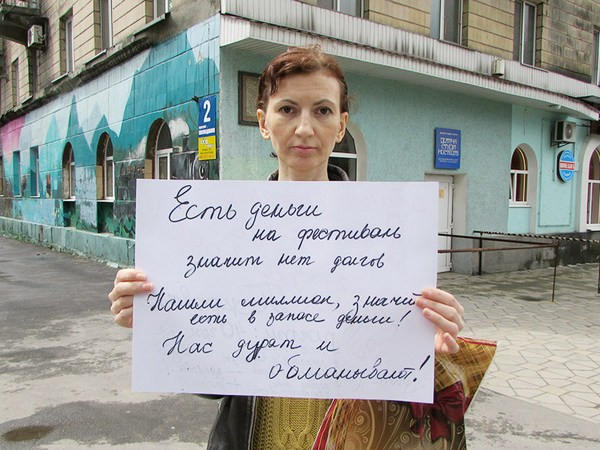 2
ДИТЯЧА
СТУДІЯ
МИСТЕЦТВ
Есть деньги
на фестиваль
значит нет долгов
Нашли миллион, значит
есть в запасе деньги!
Нас дурят и
обманывают!